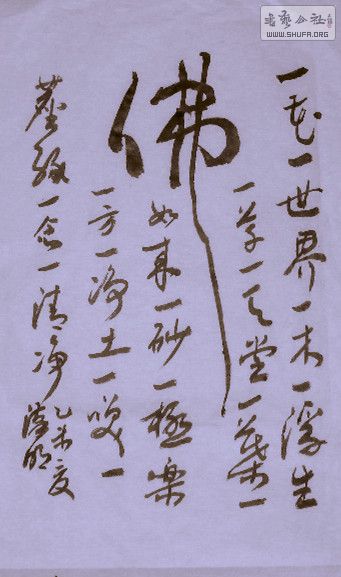 書藝公社
WWW.SHUFA.ORG
佛
一花一世界一木一浮生
一草一天堂一葉一
如来一砂一極樂
一方一净土一笑一
塵緣一念一清净
乙未夏